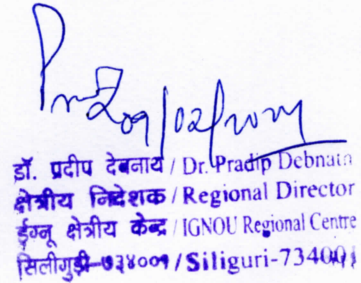 डॉ. प्रदीप देबनाथ / Dr. Pradip Debnath
क्षेत्रीय निदेशक / Regional Director
ईग्नू क्षेत्रीय केन्द्र / IGNOU Regional Centre
सिलीगुड़ी-७३४००१ / Siliguri-734001